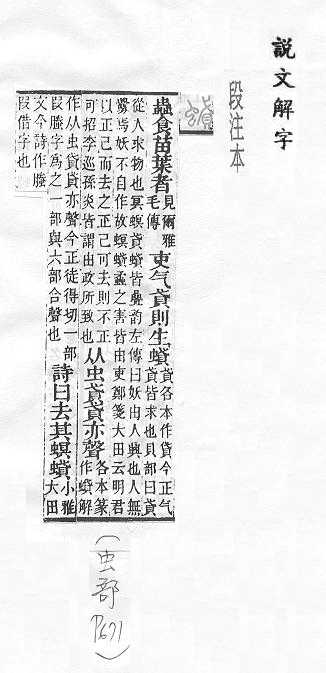 説文解字
段注本
蟘
蟲食苗葉者見爾雅毛傳吏气貣則生蟘貣各本作貸今正气貣皆求也貝部曰貣
從人求物也冥螟貣蟘皆曡韵左傳曰妖由人興也人無
釁焉妖不自作故螟蟘蟊之害皆由吏鄭箋大田云明君
以正己而去之正己可去則不正
可招李巡孫炎皆謂由政所致也从虫貣貣亦聲各本篆作蟘解
作从虫貸貸亦聲今正徒得切一部
叚螣字爲之一部與六部合聲也詩曰去其螟蟘小雅大田
文今詩作螣
叚借字也
(虫部P671)